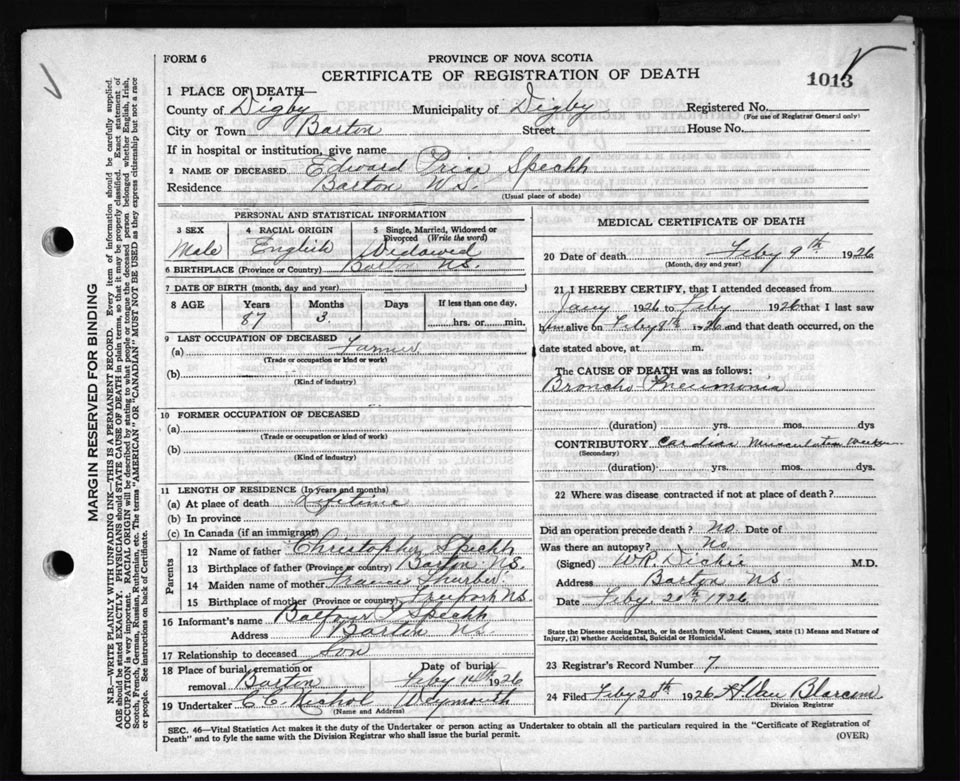 FORM 6
PROVINCE OF NOVA SCOTIA
CERTIFICATE OF REGISTRATION OF DEATH
1013
1 PLACE OF DEATH—
County of Digby Municipality of Digby Registered No.
(For use of Registrar General only)
City or Town Barton Street House No.
If in hospital or institution, give name
2 NAME OF DECEASED Edward Specht
Residence Barton N.S.
(Usual place of abode)
PERSONAL AND STATISTICAL INFORMATION
3 SEX 4 RACIAL ORIGIN 5 Single, Married, Widowed or Divorced (Write the word)
Male English Widowed
6 BIRTHPLACE (Province or Country) Barton N.S.
7 DATE OF BIRTH (month, day and year)
8 AGE Years Months Days If less than one day,
87 3. hrs. or min.
9 LAST OCCUPATION OF DECEASED
(a) Farmer
(Trade or occupation or kind or work)
(b)
(Kind of industry)
10 FORMER OCCUPATION OF DECEASED
(a)
(Trade or occupation or kind of work)
(b)
(Kind of industry)
11 LENGTH OF RESIDENCE (In years and months)
(a) At place of death Lifetime
(b) In province
(c) In Canada (if an immigrant)
Parents
12 Name of father Christopher Specht
13 Birthplace of father (Province or country) Barton N.S.
14 Maiden name of mother Frances Thurber
15 Birthplace of mother (Province or country) Freeport N.S.
16 Informant's name Specht
Address Barton N.S.
17 Relationship to deceased Son
18 Place of burial, cremation or removal Barton Date of burial Feby 14th 1926
19 Undertaker C.C. Nichol Weymouth
(Name and Address)
MEDICAL CERTIFICATE OF DEATH
20 Date of death Feby 9th 1926
(Month, day and year)
21 I HEREBY CERTIFY, that I attended deceased from
Jany 1926 to Feby 1926 that I last saw
him alive on Feby 8th 1926 and that death occurred, on the
date stated above, at m.
The CAUSE OF DEATH was as follows:
Broncho Pneumonia
(duration) yrs. mos. days
CONTRIBUTORY Cardiac
(Secondary)
(duration) yrs. mos. dys.
22 Where was disease contracted if not at place of death?
Did an operation precede death? No. Date of
Was there an autopsy? No
(Signed) W.R. Dickie M.D.
Address Barton N.S.
Date Feby. 20th 1926
State the Disease causing Death, or in death from Violent Causes, state (1) Means and Nature of
Injury, (2) whether Accidental, Suicidal or Homicidal.
23 Registrar's Record Number 7
24 Filed Feby 20th 1926 H. Van Blarcom
Division Registrar
SEC. 46—Vital Statistics Act makes it the duty of the Undertaker or person acting as Undertaker to obtain all the particulars required in the "Certificate of Registration of
Death" and to fyle the same with the Division Registrar who shall issue the burial permit. (OVER)
MARGIN RESERVED FOR BINDING
N.B.—WRITE PLAINLY WITH UNFADING INK—THIS IS A PERMANENT RECORD. Every item of information should be carefully supplied.
AGE should be stated EXACTLY. PHYSICIANS should STATE CAUSE OF DEATH in plain terms, so that it may be properly classified. Exact statement of
OCCUPATION is very important. RACIAL ORIGIN will be described by stating to what people or tongue the deceased person belonged whether English, Irish,
Scotch, French, German, Russian, Ruthenian, etc. The terms "AMERICAN" OR "CANADIAN" MUST NOT BE USED as they express citizenship but not a race
or people. See instructions on back of Certificate.